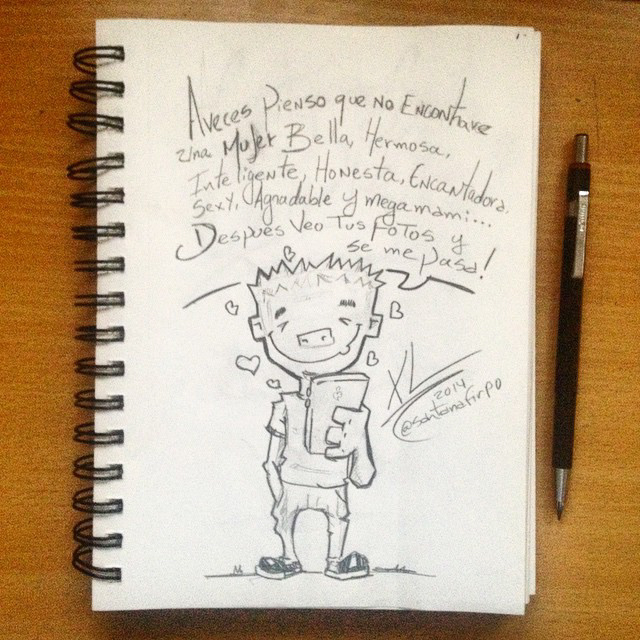 Aveces Pienso que no Encontrare
una Mujer Bella, Hermosa,
Inteligente, Honesta, Encantadora,
Sexy, Agradable y mega mami...
Después veo Tus fotos y
se me pasa!
XL
2014
@santanafirpo